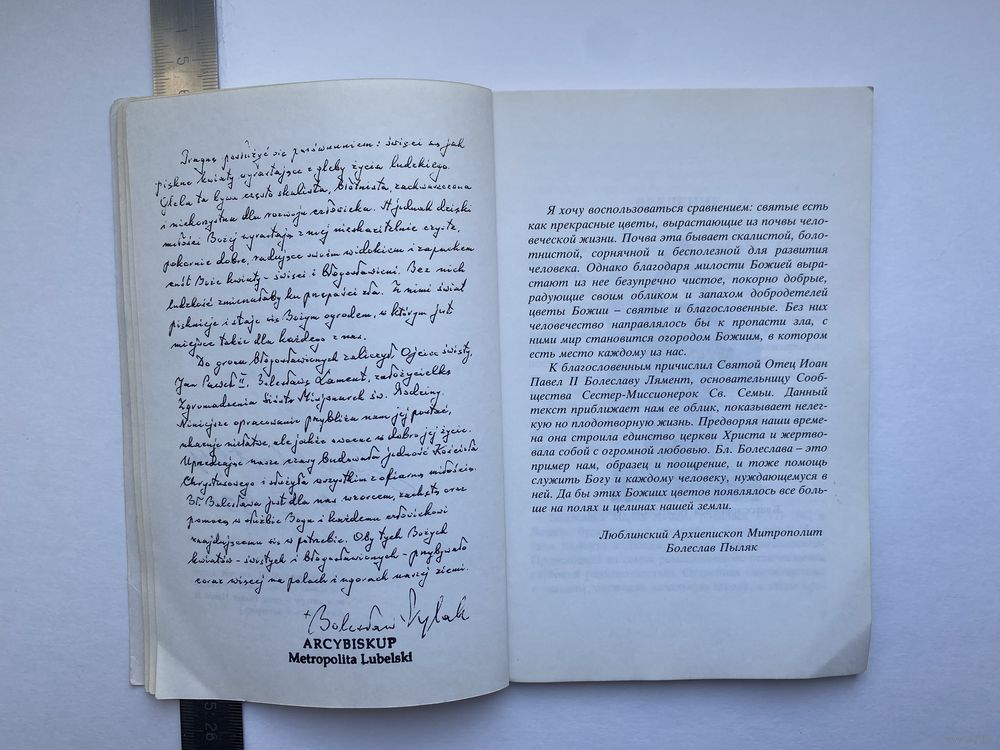 Pragnę posłużyć się porównaniem: święci są jak
piękne kwiaty wyrastające z gleby życia ludzkiego.
Gleba ta bywa często skalista, błotnista, zachwaszczona
i niekorzystna dla rozwoju człowieka. A jednak dzięki
miłości Bożej wyrastają z niej nieskazitelnie czyste,
pokornie dobre, radujące swoim widokiem i zapachem
cnót Boże kwiaty - święci i błogosławieni. Bez nich
ludzkość zmierzałaby ku przepaści zła. Z nimi świat
pięknieje i staje się Bożym ogrodem, w którym jest
miejsce także dla każdego z nas.
Do grona błogosławionych zaliczył Ojciec święty,
Jan Paweł II, Bolesławę Lament, założycielkę
Zgromadzenia Sióstr Misjonarek św. Rodziny.
Niniejsze opracowanie przybliża nam jej postać,
ukazuje niełatwe, ale jakże owocne w dobro jej życie.
Uprzedzając nasze czasy budowała jedność Kościoła
Chrystusowego i służyła wszystkim z ofiarną miłością.
Bł. Bolesława jest dla nas wzorcem, zachętą oraz
pomocą w służbie Bogu i każdemu człowiekowi
znajdującemu się w potrzebie. Oby tych Bożych
kwiatów - świętych i błogosławionych - przybywało
coraz więcej na polach i ugorach naszej ziemi.
+ Bolesław Pylak
ARCYBISKUP
Metropolita Lubelski
Я хочу воспользоваться сравнением: святые есть
как прекрасные цветы, вырастающие из почвы чело-
веческой жизни. Почва эта бывает скалистой, боло-
тнистой, сорнячной и бесполезной для развития
человека. Однако благодаря милости Божией выра-
стают из нее безупречно чистое, покорно добрые,
радующие своим обликом и запахом добродетелей
цветы Божии – святые и благословенные. Без них
человечество направлялось бы к пропасти зла, с
ними мир становится огородом Божиим, в котором
есть место каждому из нас.
К благословенным причислил Святой Отец Иоан
Павел II Болеславу Лямент, основательницу Сооб-
щества Сестер-Миссионерок Св. Семьи. Данный
текст приближает нам ее облик, показывает нелег-
кую но плодотворную жизнь. Предворяя наши време-
на она строила единство церкви Христа и жертво-
вала собой с огромной любовью. Бл. Болеслава – это
пример нам, образец и поощрение, и тоже помощь
служить Богу и каждому человеку, нуждающемуся в
ней. Да бы этих Божиих цветов появлялось все боль-
ше на полях и целинах нашей земли.
Люблинский Архиепископ Митрополит
Болеслав Пыляк
5
26